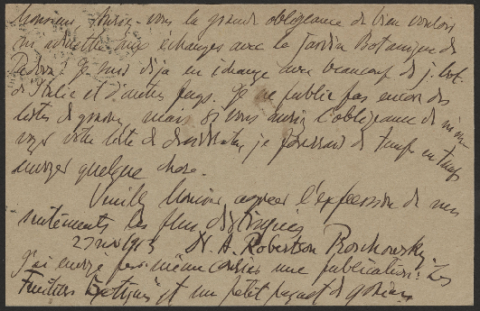 Monsieur, Auriez-vous la grande obligeance de bien vouloir
m'admettre aux échanges avec le Jardin Botanique de
Padova? Je suis déja en échange avec beaucoup de j. bot.
d'Italie et d'autres pays. Je ne publie pas encore des
listes de graines, mais si vous auriez l'obligeance de m'en
voyer votre liste de je pourrais de temps en temps
envoyer quelque chose.
Veuillez Monsieur agréer l'expression de mes
sentiments les plus distingués
27 nov 1913 Dr. A. Robertson Proschowsky
J'ai envoyé par même courrier une publication: Les
Fruitiers Exotiques et un petit paquet de graines